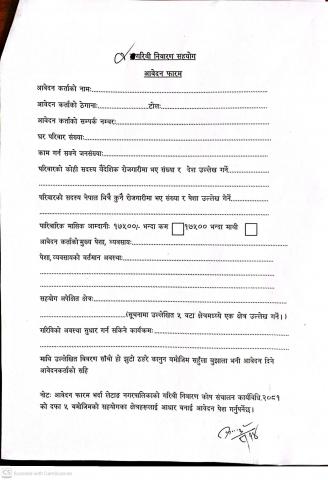 गरिवी निवारण सहयोग
आवेदन फारम
आवेदन कर्ताको नामः
आवेदन कर्ताको ठेगानाः टोलः
आवेदन कर्ताको सम्पर्क नम्बरः
घर परिवार संख्याः
काम गर्न सक्ने जनसंख्याः
परिवारको कोही सदस्य वैदेशिक रोजगारीमा भए संख्या र देश उल्लेख गर्ने
परिवारको सदस्य नेपाल भित्रै कुनै रोजगारीमा भए संख्या र पेशा उल्लेख गर्ने
पारिवारिक मासिक आम्दानीः १७५००/- भन्दा कम १७५०० भन्दा माथी
आवेदन कर्ताको मुख्य पेशा, व्यवसायः
पेशा, व्यवसायको वर्तमान अवस्थाः
सहयोग अपेक्षित क्षेत्रः
(सूचनामा उल्लेखित ५ वटा क्षेत्रमध्ये एक क्षेत्र उल्लेख गर्ने।)
गरिविको अवस्था सुधार गर्न सकिने कार्यक्रमः
माथि उल्लेखित विवरण साँचो हो झुटो ठहरे कानुन बमोजिम सहुँला बुझाउला भनी आवेदन दिने
आवेदनकर्ताको सहि
नोटः आवेदन फारम भर्दा लेटाङ नगरपालिकाको गरिवी निवारण कोष संचालन कार्यविधि,२०८१
को दफा ५ बमोजिमको सहयोगका क्षेत्रहरुलाई आधार बनाई आवेदन पेश गर्नुपर्नेछ।
CS Scanned with CamScanner